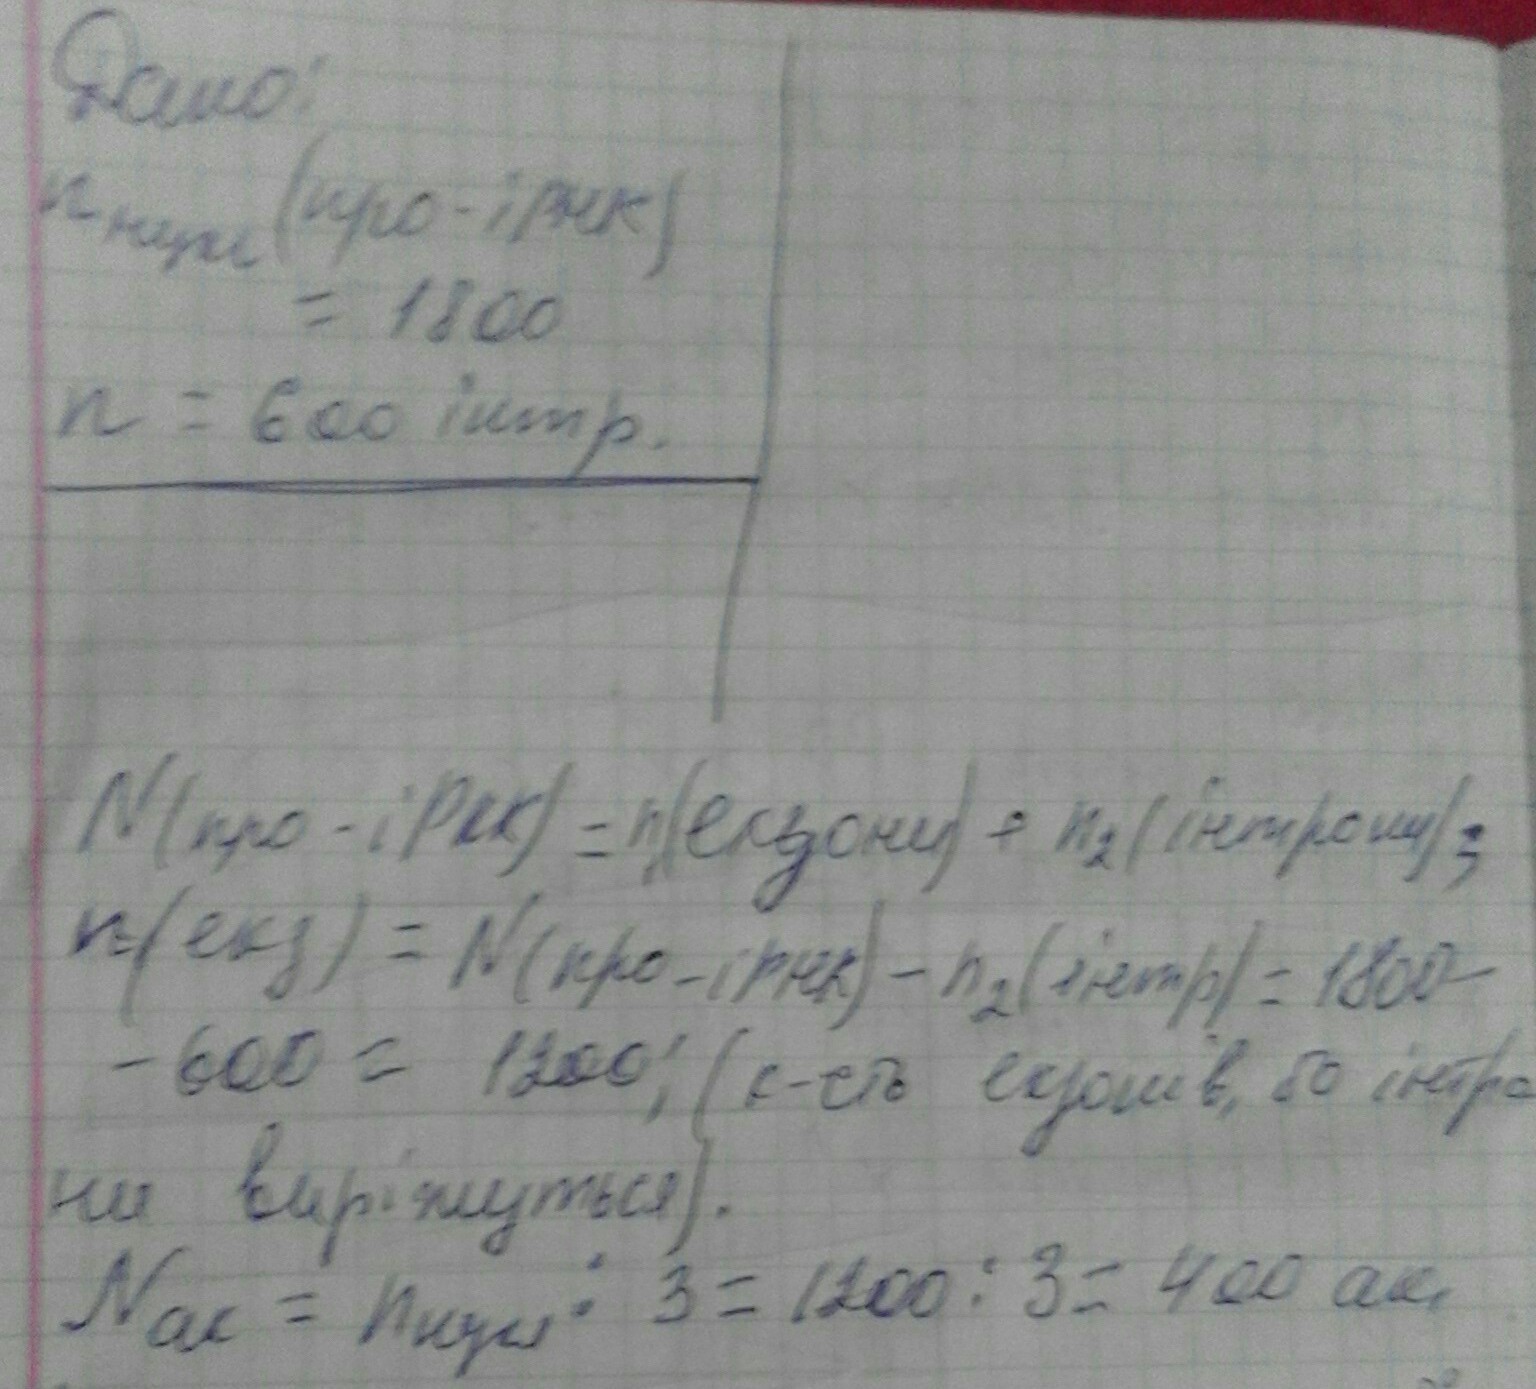 Дано:
n нукл (про-іРНК)
= 1800
n = 600 інтр.
N(про-іРНК) = n₁(екзони) + n₂(інтрони);
n(екз) = N(про-іРНК) - n₂(інтр) = 1800-
-600 = 1200; (к-сть екзонів, бо інтро
ни виріжуться).
Nак = nнукл : 3 = 1200 : 3 = 400 ак.